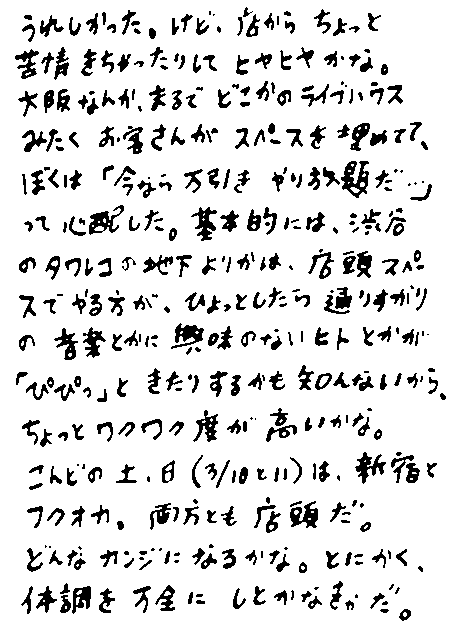 うれしかった。けど、店から ちょっと
苦情 きちゃったりして ヒヤヒヤ かな。
大阪なんか、まるで どこかの ライブハウス
みたく お客さんが スペースを 埋めてて、
ぼくは 「今なら 万引き やり放題だ…」
って 心配した。基本的には、渋谷
の タワレコ の 地下 よりかは、店頭 スペー
スで やる方が、ひょっとしたら 通りすがり
の 音楽とかに 興味のない ヒト とかが
「ぴぴっ」と きたり するかも 知んないから、
ちょっと ワクワク 度が 高いかな。
こんどの 土、日 (3/10と11) は、新宿と
フクオカ。両方とも 店頭だ。
どんな カンジに なるかな。とにかく、
体調を 万全に しとかなきゃだ。